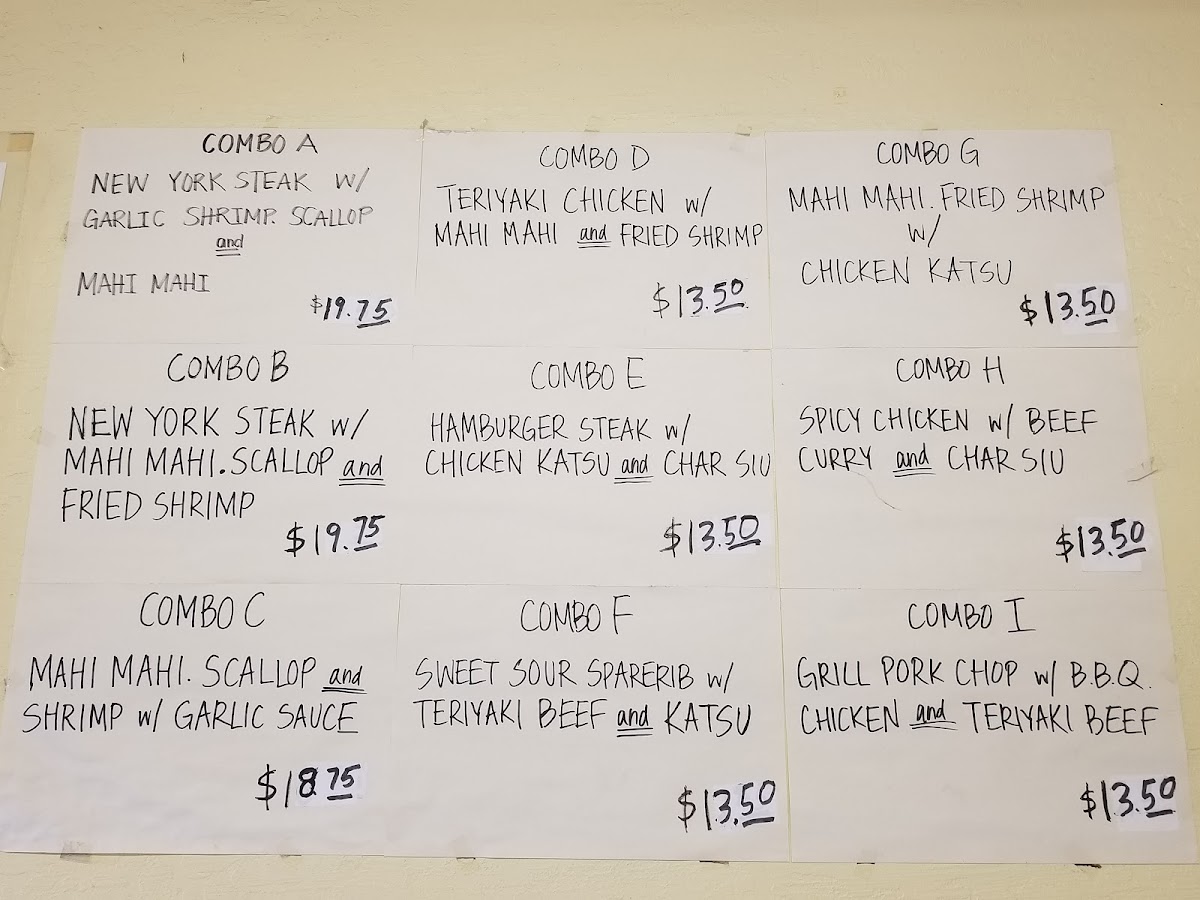 COMBO A
NEW YORK STEAK W/
GARLIC SHRIMP. SCALLOP
and
MAHI MAHI
$19.75
COMBO B
NEW YORK STEAK w/
MAHI MAHI. SCALLOP and
FRIED SHRIMP
$19.75
COMBO C
MAHI MAHI. SCALLOP and
SHRIMP w/ GARLIC SAUCE
$18.75
COMBO D
TERIYAKI CHICKEN w/
MAHI MAHI and FRIED SHRIMP
$13.50
COMBO E
HAMBURGER STEAK w/
CHICKEN KATSU and CHAR SIU
$13.50
COMBO F
SWEET SOUR SPARERIB w/
TERIYAKI BEEF and KATSU
$13.50
COMBO G
MAHI MAHI. FRIED SHRIMP
w/
CHICKEN KATSU
$13.50
COMBO H
SPICY CHICKEN w/ BEEF
CURRY and CHAR SIU
$13.50
COMBO I
GRILL PORK CHOP w/ B.B.Q.
CHICKEN and TERIYAKI BEEF
$13.50